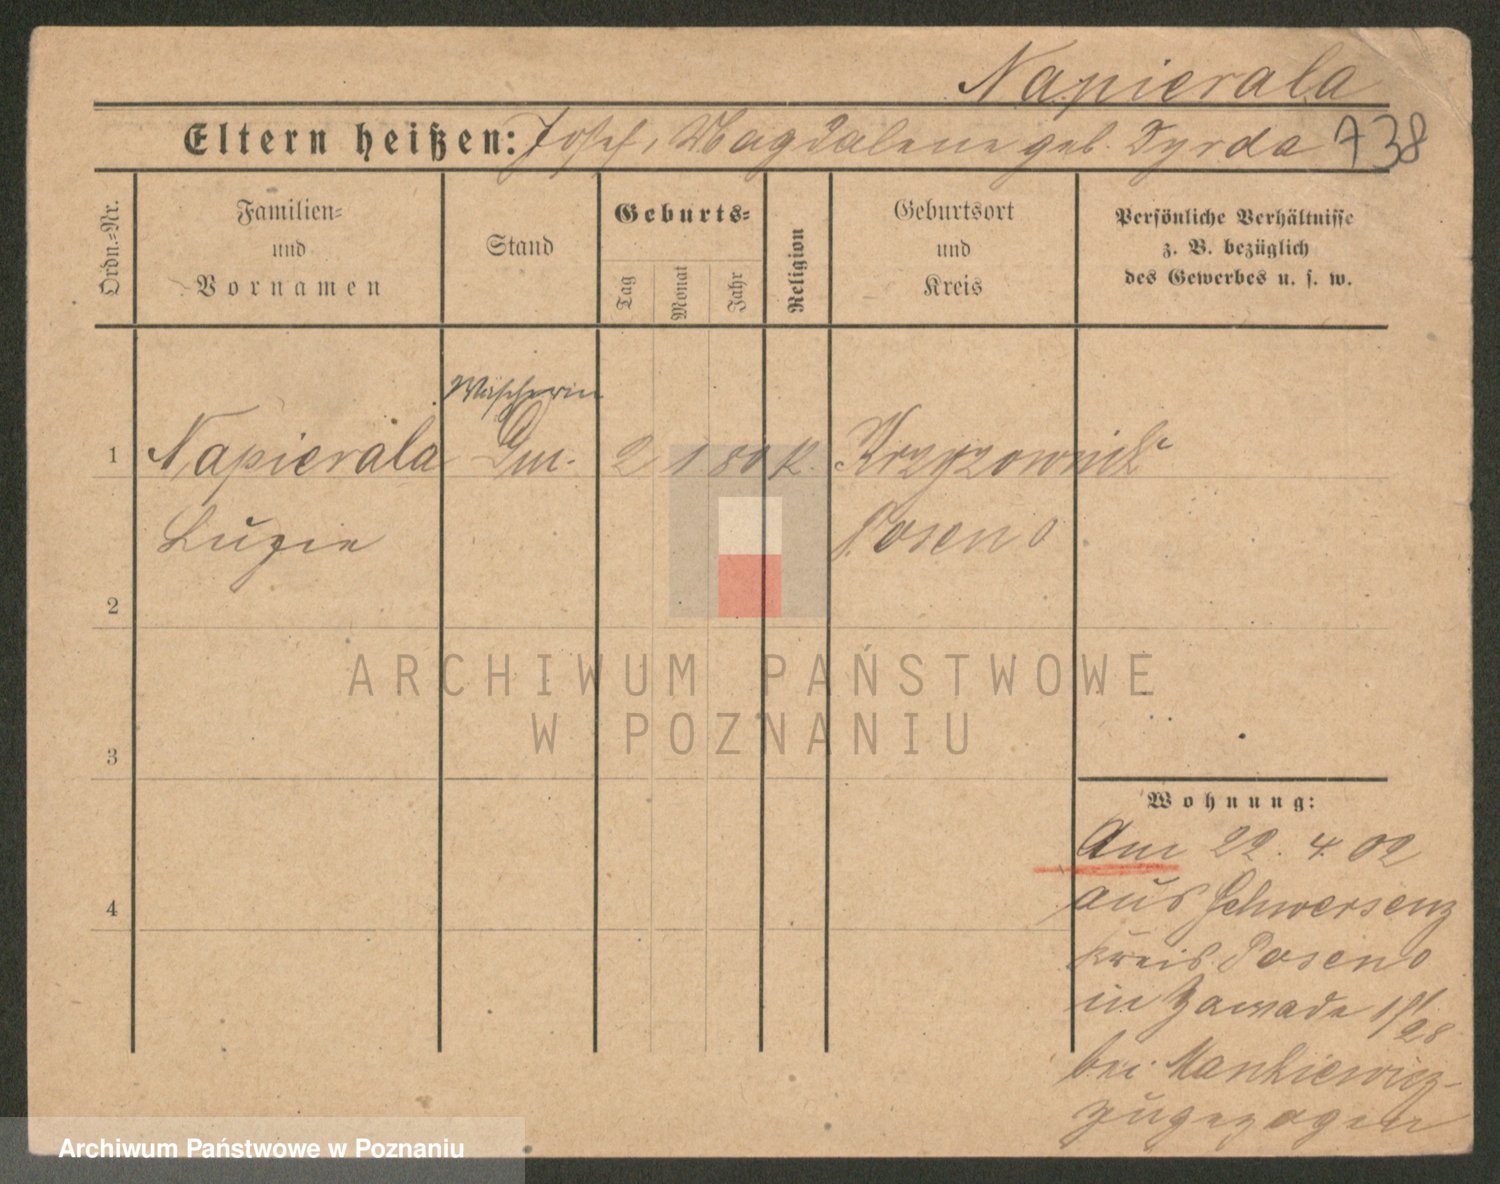 Napierala
Eltern heißen: Josef, Magdalene geb. Dyrda 738
Ordn.=Nr.
Familien=
und
Vornamen
Stand
Geburts=
Tag
Monat
Jahr
Religion
Geburtsort
und
Kreis
Persönliche Verhältnisse
z. B. bezüglich
des Gewerbes u. s. w.
Wäscherin
1 Napierala 2 1 80 K. Krzyzownik
Luzie Posen O
2
ARCHIWUM PAŃSTWOWE
W POZNANIU
3
Wohnung:
Am 22. 4. 02
aus Schwersenz
4
Kreis Posen O
in Zawade
bei Mankiewicz
zugezogen
Archiwum Państwowe w Poznaniu